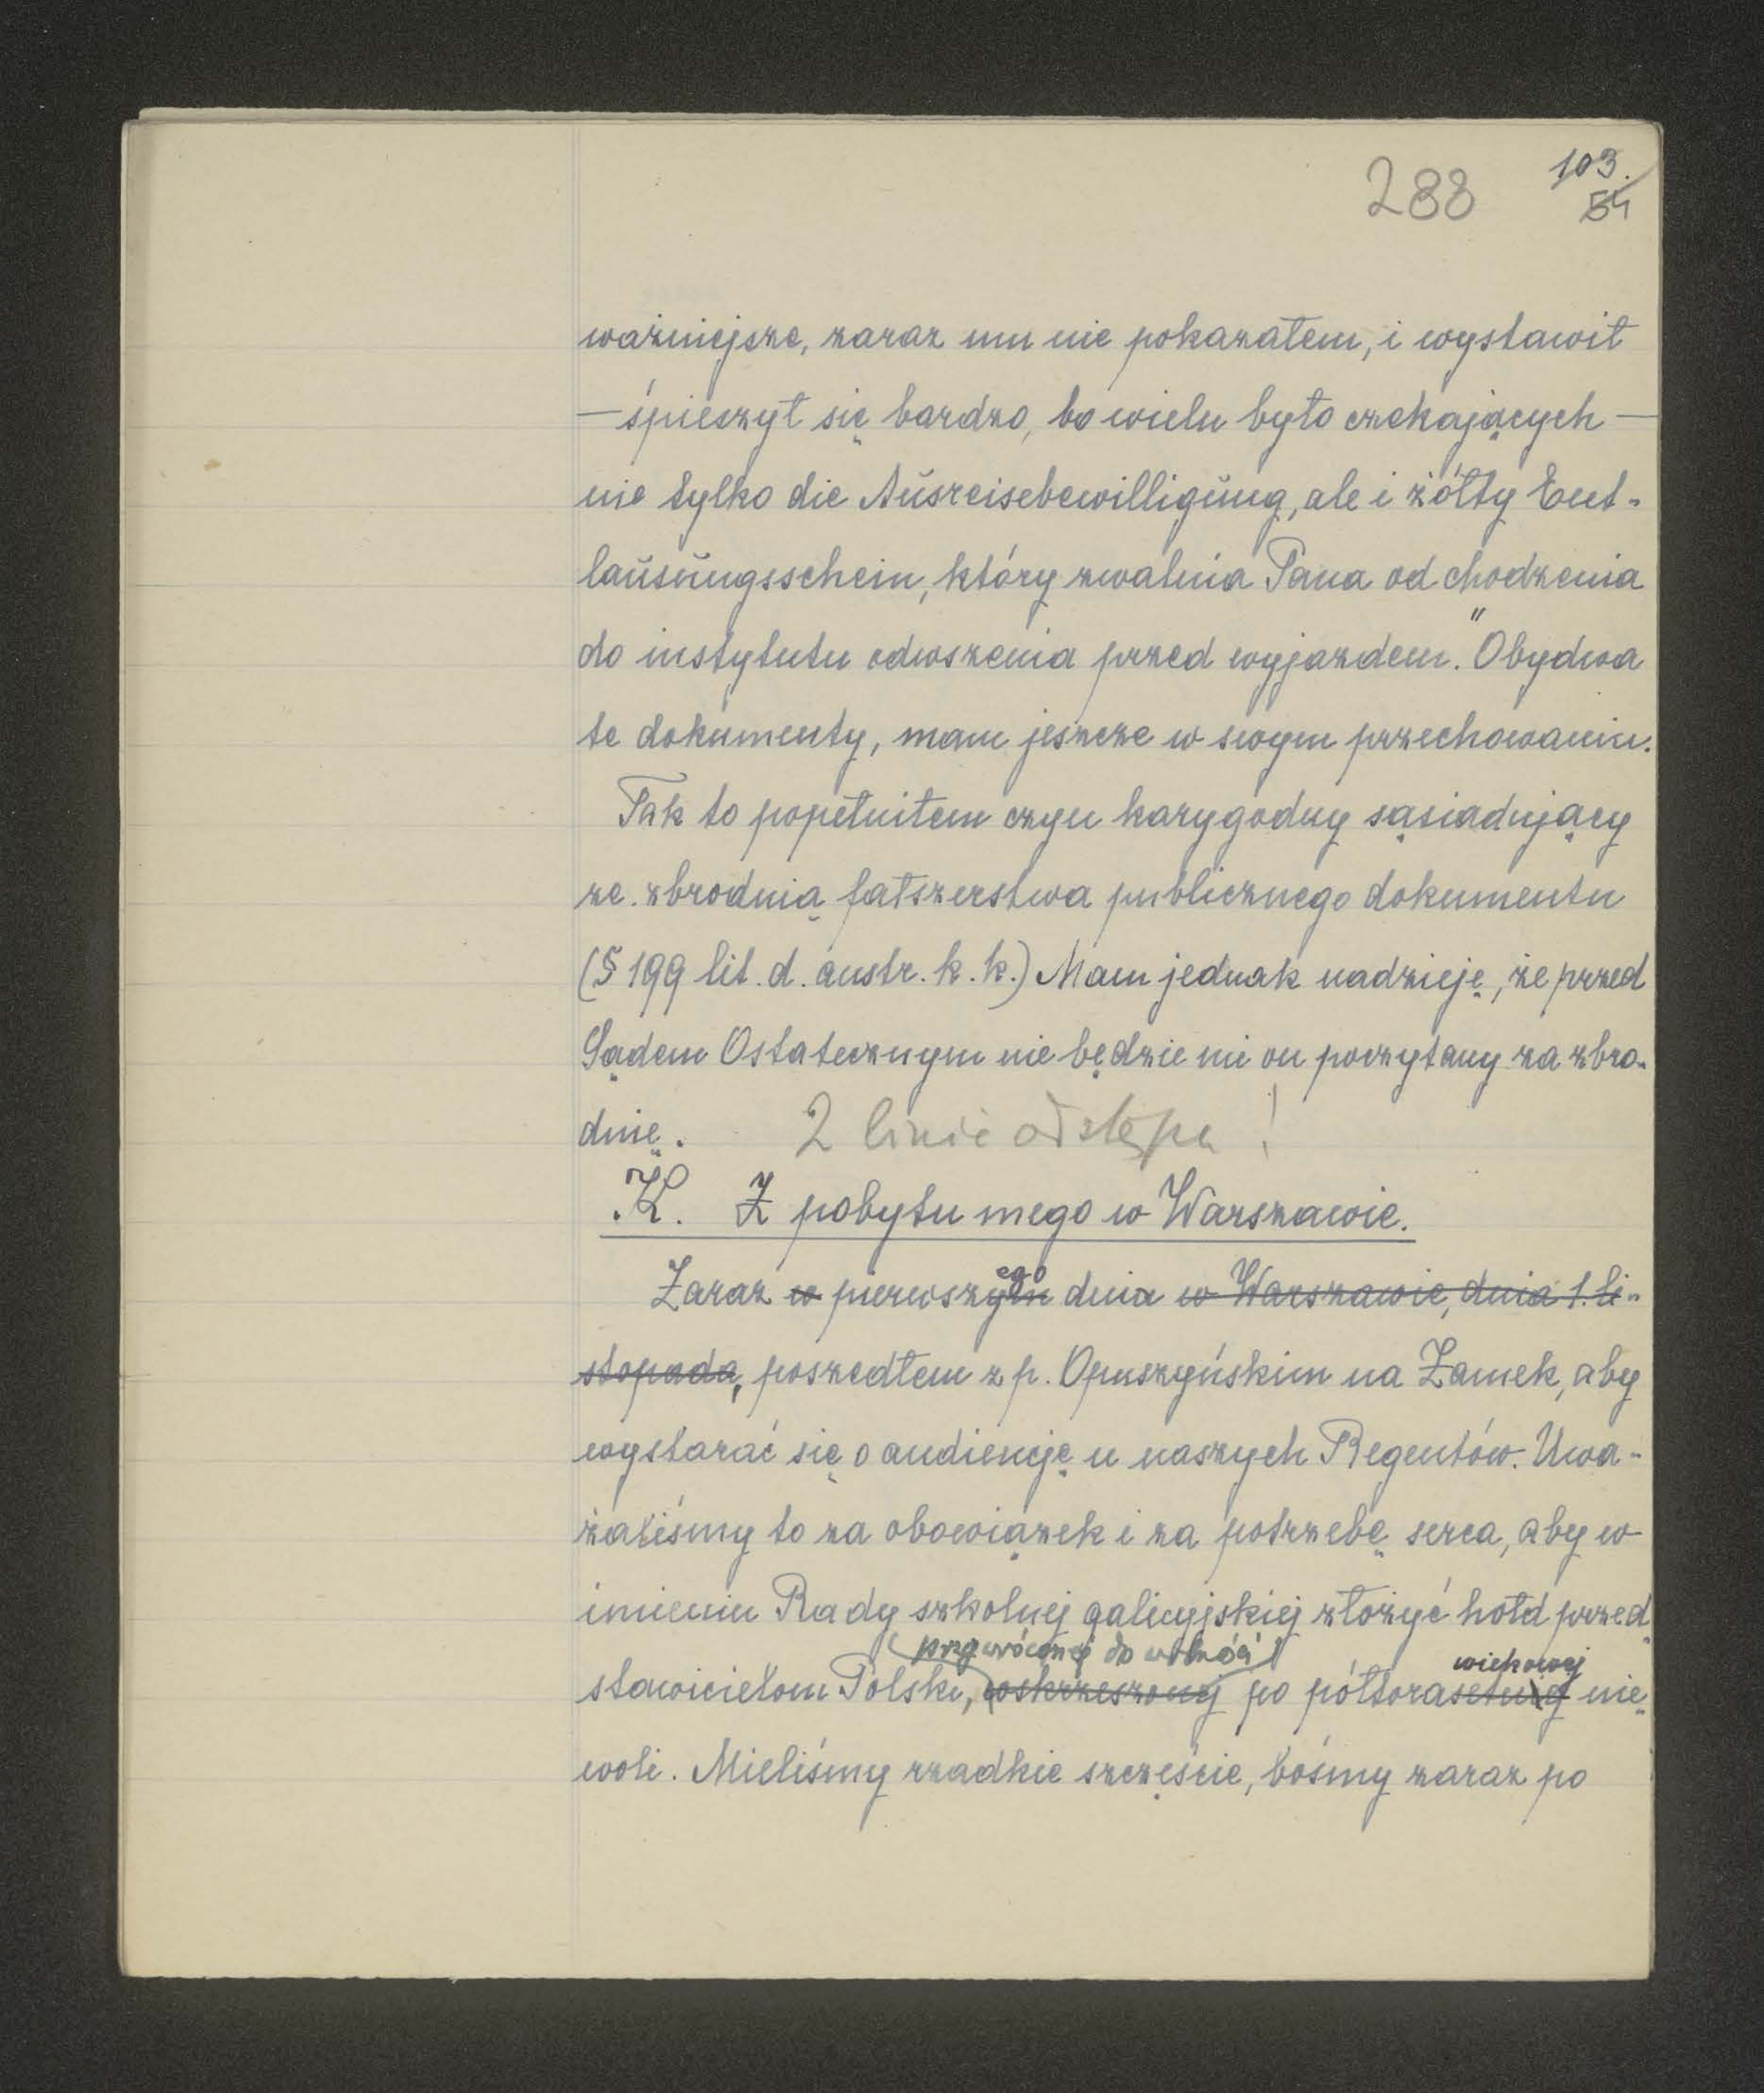 288
103.
54
ważniejsze, zaraz mu nie pokazałem, i wystawił
— śpieszył się bardzo, bo wielu było czekających —
nie tylko die Ausreisebewilligung, ale i żółty Ent-
lausungsschein, który zwalnia Pana od chodzenia
do instytutu odwszenia przed wyjazdem." Obydwa
te dokumenty, mam jeszcze w swym przechowaniu.
Tak to popełniłem czyn karygodny sąsiadujący
ze zbrodnią fałszerstwa publicznego dokumentu
(§ 199 lit. d. austr. k. k.) Mam jednak nadzieję, że przed
Sądem Ostatecznym nie będzie mi on poczytany za zbro-
dnię. 2 linie odstępu!
K. Z pobytu mego w Warszawie.
ego
Zaraz w pierwszym dnia w Warszawie, dnia 1. li-
stopada, poszedłem z p. Opuszyńskim na Zamek, aby
wystarać się o audiencję u naszych Regentów. Uwa-
żaliśmy to za obowiązek i za potrzebę serca, aby w
imieniu Rady szkolnej galicyjskiej złożyć hołd przed-
(przywróconej do wolności) wiekowej
stawicielom Polski, wskrzeszonej po półtorasetnej nie-
woli. Mieliśmy rzadkie szczęście, bośmy zaraz po